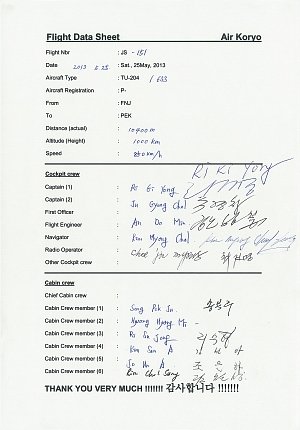 Flight Data Sheet Air Koryo
Flight Nbr : JS - 151
Date 2013 5.25. : Sat., 25May, 2013
Aircraft Type : TU-204 / 633
Aircraft Registration : P-
From : FNJ
To : PEK
Distance (actual) :
Altitude (Height) : 1000 km
Speed : 850 km/h
Cockpit crew Ri Ki Yong
Captain (1) : Ri Gi Yong
Captain (2) : Ju Gyong Chol
First Officer :
Flight Engineer : An Do Min
Navigator : Kim Myong Chol
Radio Operator : Choe Jin myong
Other Cockpit crew :
Cabin crew
Chief Cabin crew :
Cabin Crew member (1) : Song Pok Sun
Cabin Crew member (2) : Hwang Hyang Mi -
Cabin Crew member (3) : Ri Su Jong
Cabin Crew member (4) : Kim Son A 김선아
Cabin Crew member (5) : Jo Un A 조은아
Cabin Crew member (6) Kim Chol Song
THANK YOU VERY MUCH !!!!!!! 감사합니다 !!!!!!!